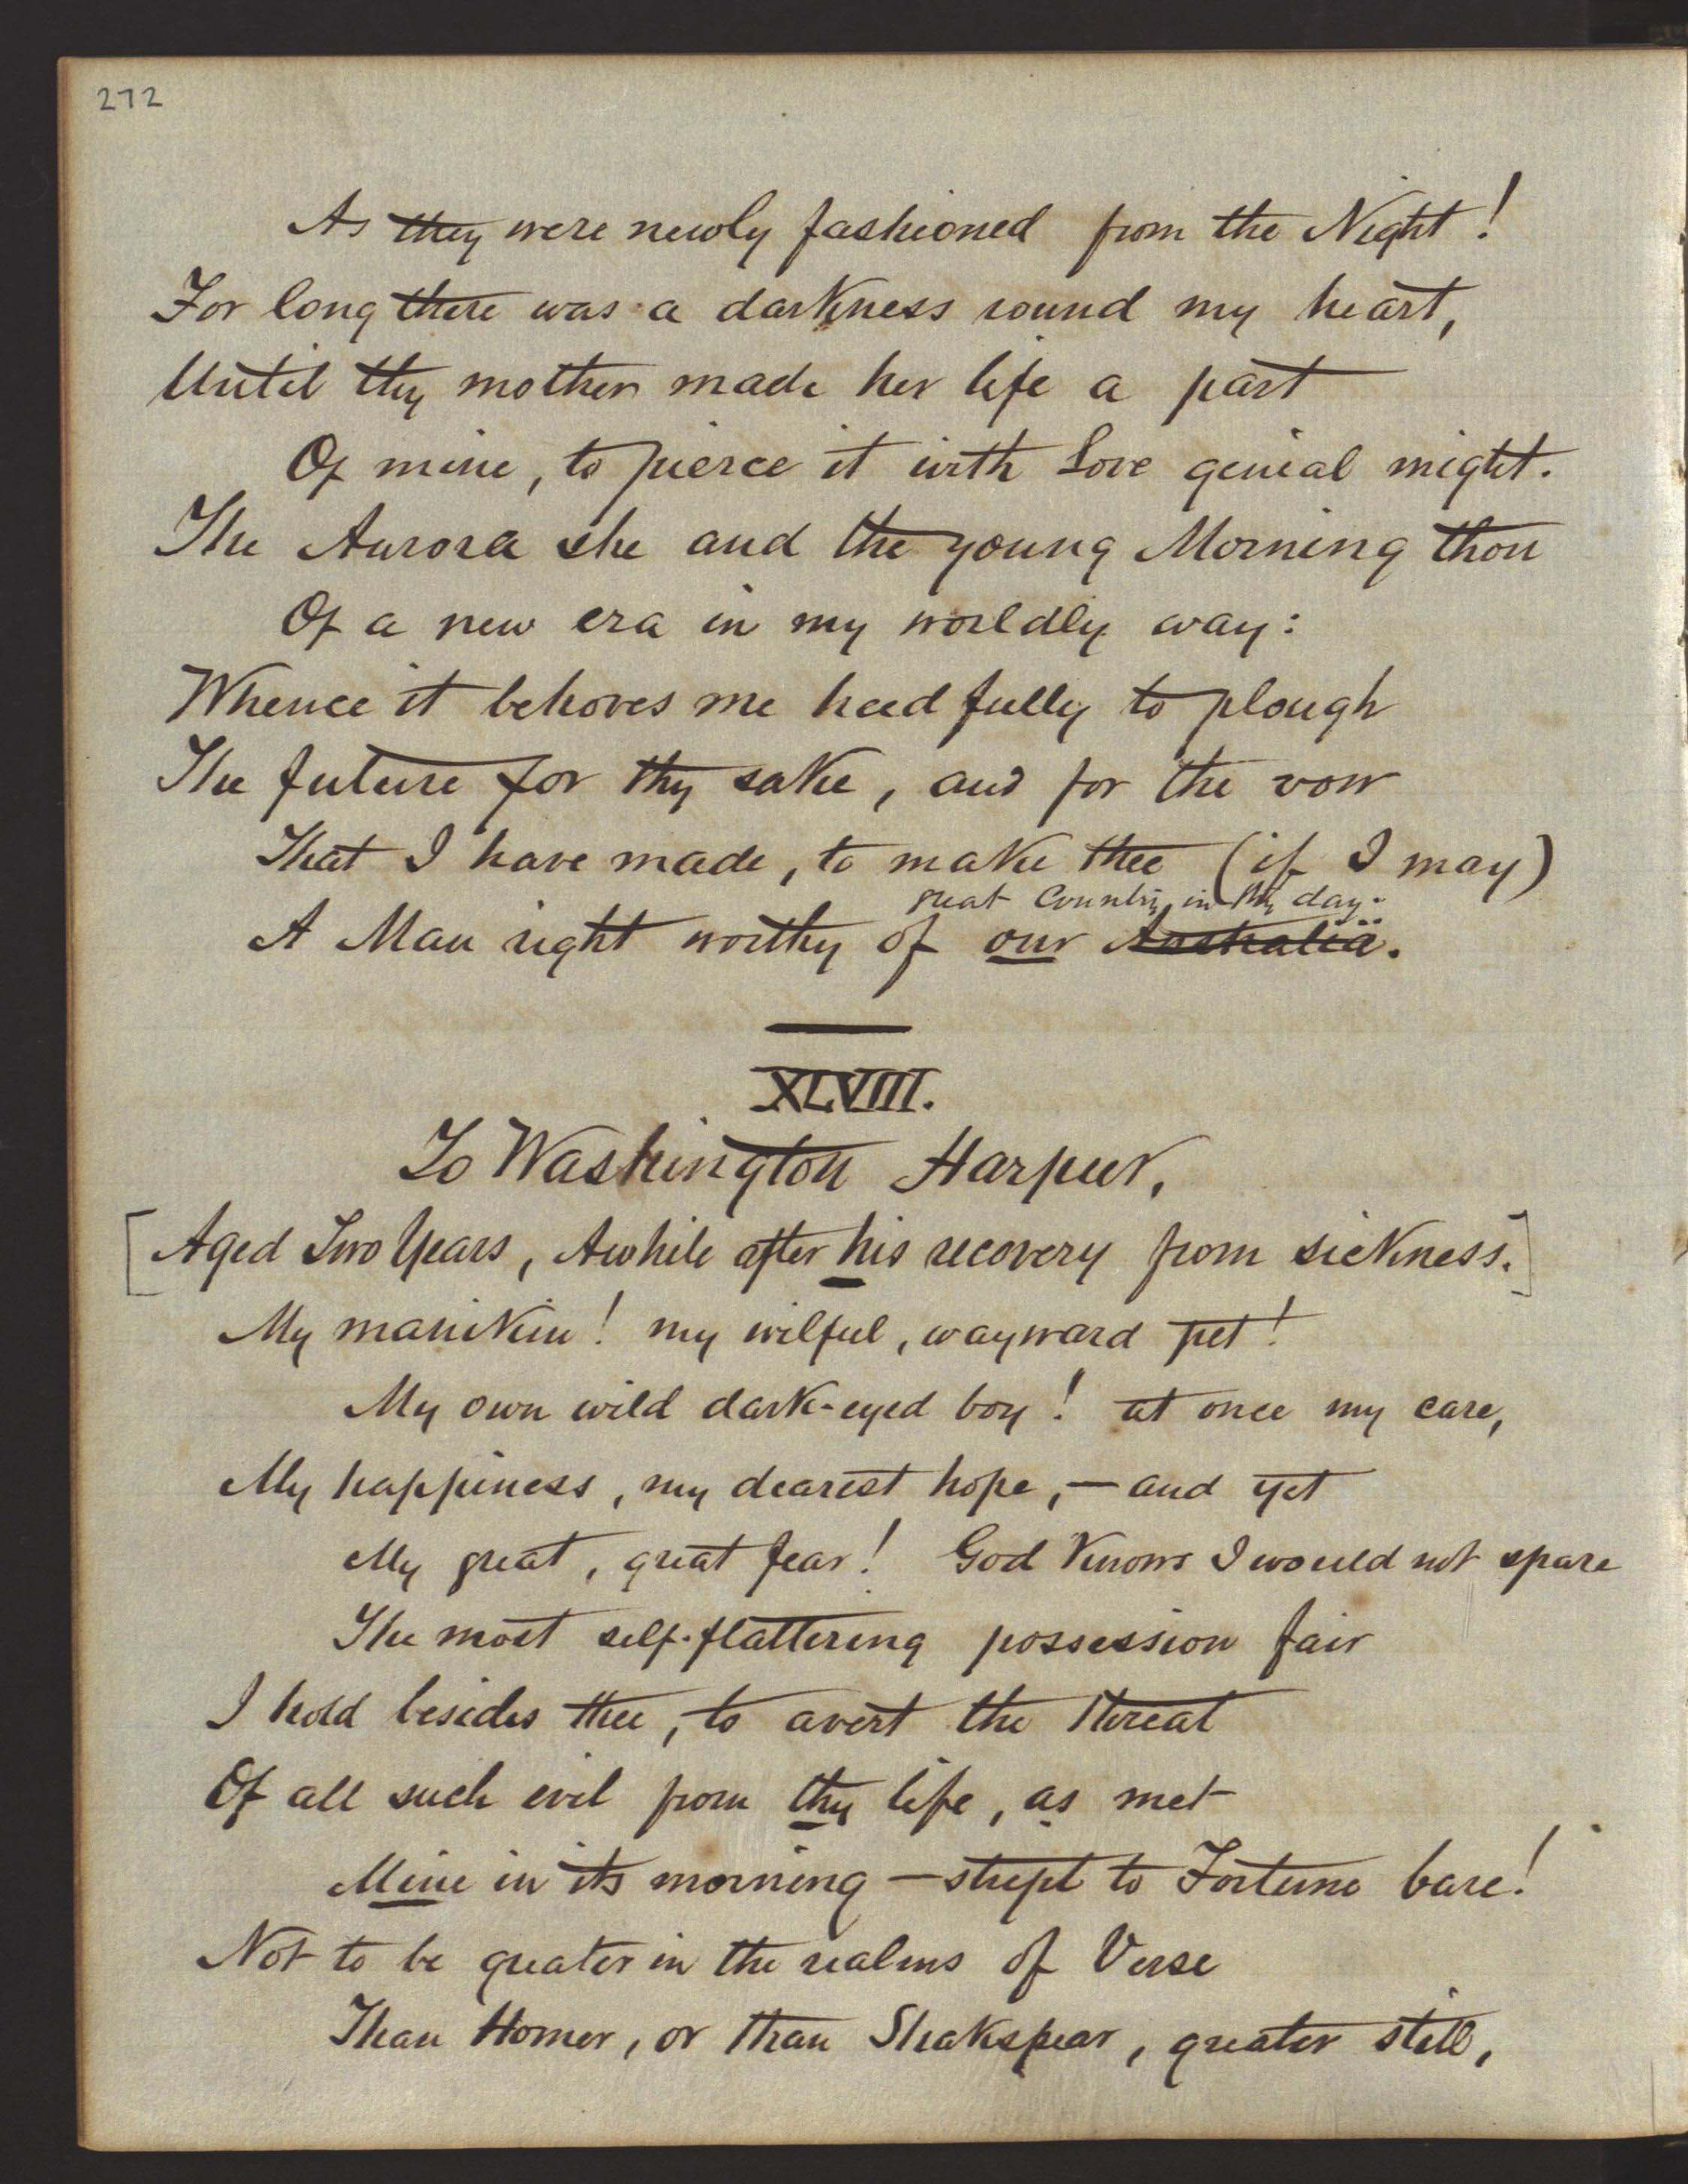 272
As they were newly fashioned from the Night!
For long there was a darkness round my heart,
Until thy mother made her life a part
Of mine, to pierce it with Love genial might.
The Aurora she and the young Morning thou
Of a new era in my worldly way:
Whence it behoves me heedfully to plough
The future for thy sake, and for the vow
That I have made, to make thee (if I may)
great Country in thy day.
A Man right worthy of our Australia.
XLVIII.
To Washington Harpur,
[Aged Two Years, Awhile after his recovery from sickness.]
My manikin! my wilful, wayward pet!
My own wild dark-eyed boy! at once my care,
My happiness, my dearest hope,—and yet
My great, great fear! God knows I would not spare
The most self-flattering possession fair
I hold besides thee, to avert the threat
Of all such evil from thy life, as met
Mine in its morning—stript to Fortune bare!
Not to be greater in the realms of Verse
Than Homer, or than Shakspear, greater still,